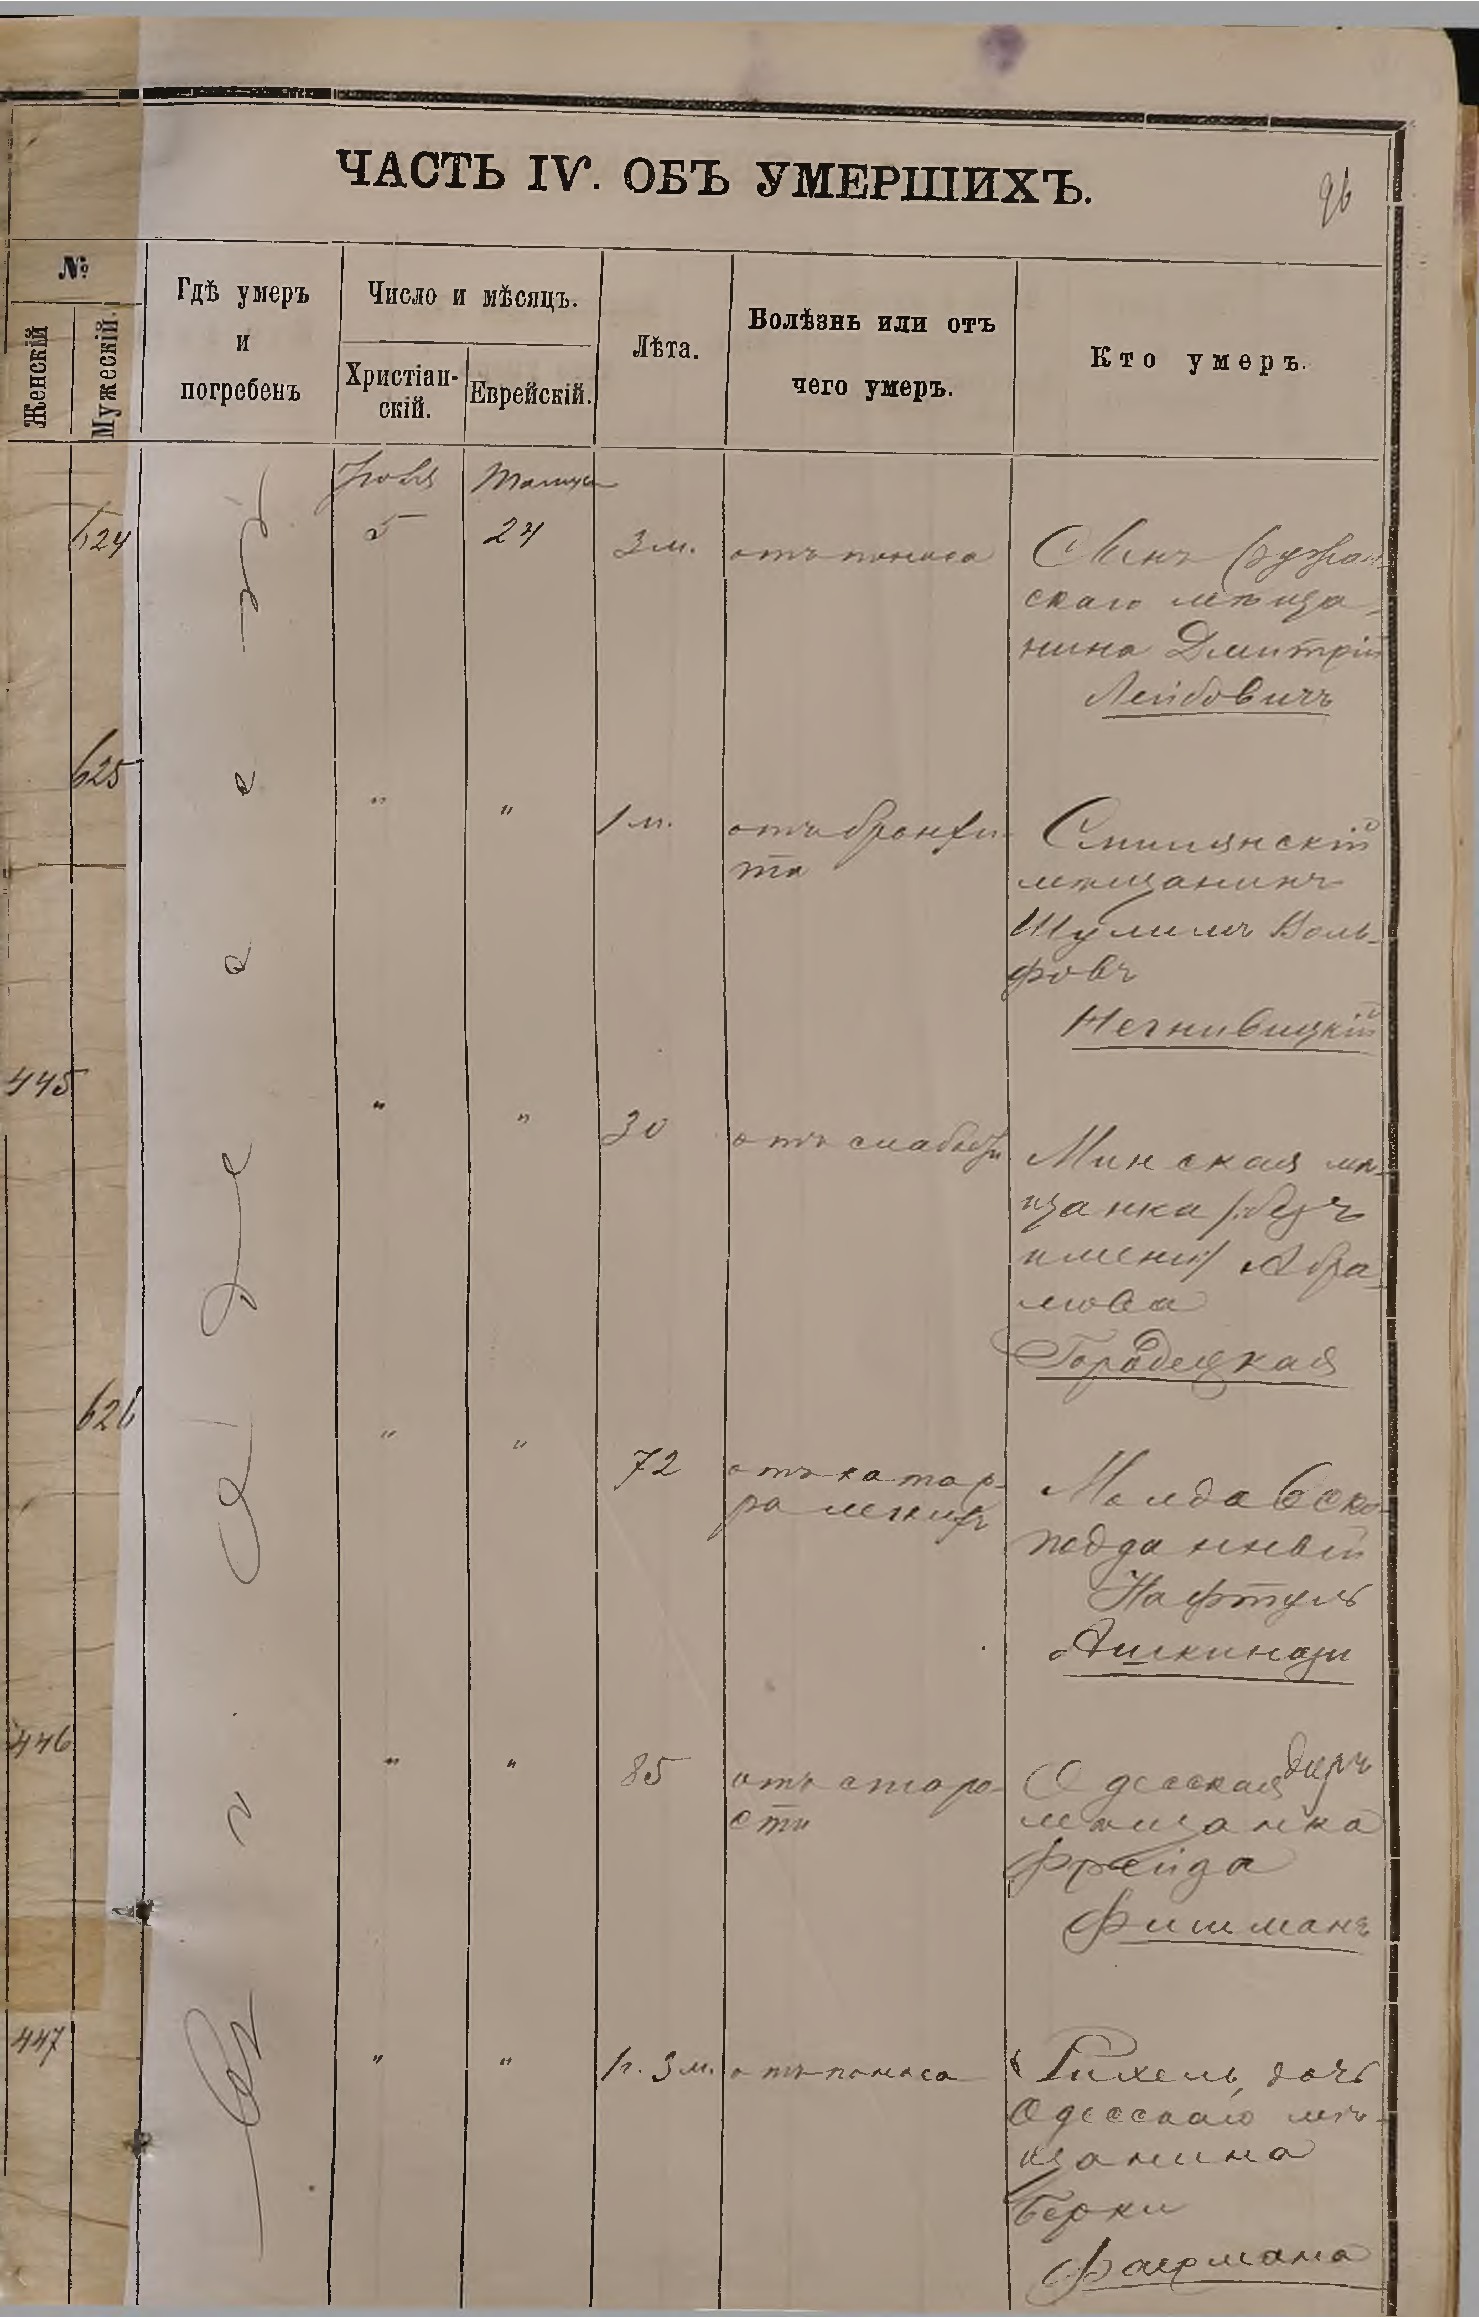 ЧАСТЬ IV. ОБЪ УМЕРШИХЪ.
96
№
Женскій
Мужескій.
Гдѣ умеръ
и
погребенъ
Число и мѣсяцъ.
Христіан-
скій.
Еврейскій.
Лѣта.
Болѣзнь или отъ
чего умеръ.
Кто умеръ.
въ г. Одессѣ
Іюля
624
5
24
3 м.
отъ поноса
Сынъ
скаго мѣща-
нина Дмитрій
Лейбовичъ
625
"
"
1 м.
отъ бронхи-
та
Смилянскій
мѣщанинъ
Шулимъ Воль-
фовъ
Нечнивицкій
445
"
"
30
отъ слабости
Минская мѣ-
щанка /:безъ
имени:/ Абра-
мова
Городецкая
626
"
"
72
отъ катар-
ра легкихъ
Молдавско-
подданный
Нафтуль
Ашкинази
446
"
"
85
отъ старо-
сти
Одесская
мѣщанка
Фрейда
Фишманъ
447
"
"
1 г. 3 м.
отъ поноса
Рихель, дочь
Одесскаго мѣ-
щанина
Берки
Фаермана